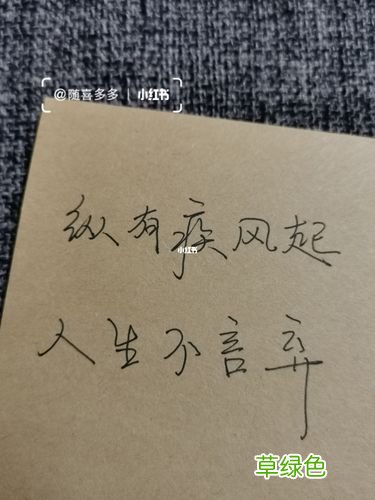 @随喜多多 | 小红书
纵有疾风起
小红书
人生不言弃
草绿色